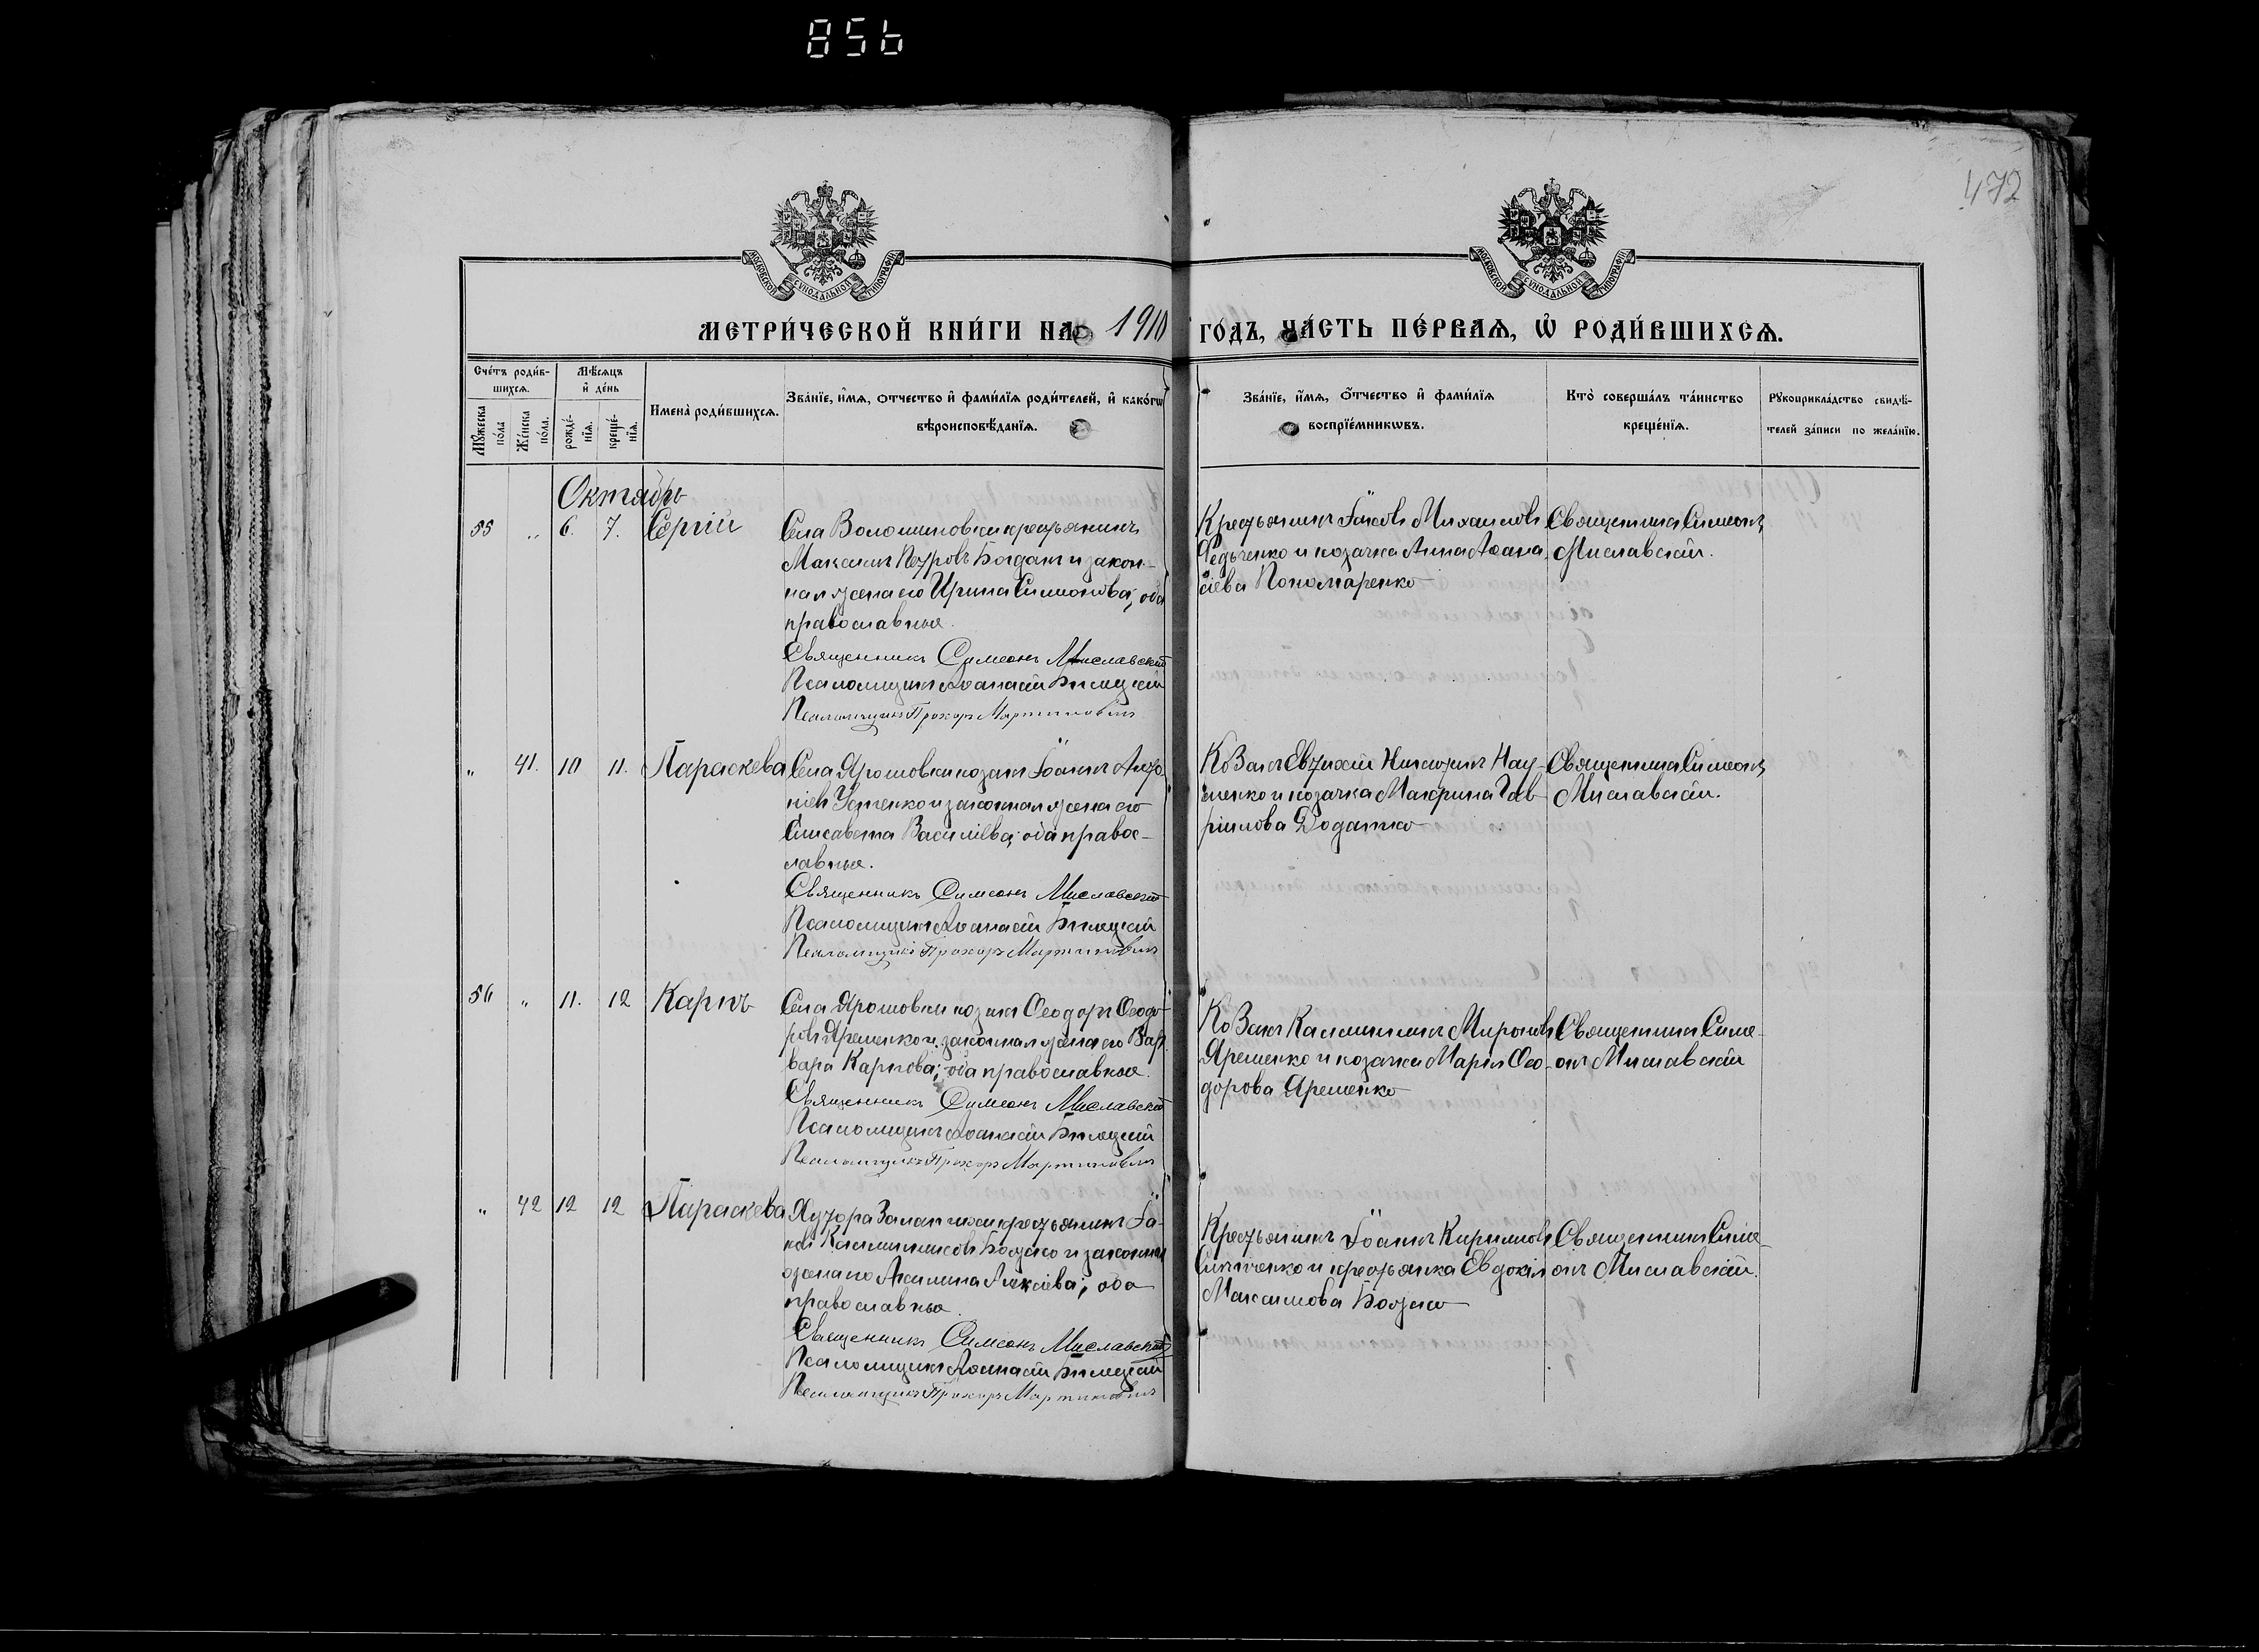 856
472
МОСКОВСКОЙ СѴНОДАЛЬНОЙ ТИПОГРАФІИ
МОСКОВСКОЙ СѴНОДАЛЬНОЙ ТИПОГРАФІИ
МЕТРИ́ЧЕСКОЙ КНИ́ГИ НА 1910 ГО́ДЪ, ЧА́СТЬ ПЕ́РВАѦ, Ѽ РОДИ́ВШИХСѦ.
Сче́тъ роди́в-
шихсѧ.
Мꙋ́жеска по́ла
Же́нска по́ла.
Мѣ́сѧцъ и҆ де́нь
рожде́-
нїѧ.
креще́-
нїѧ.
И҆мена̀ роди́вшихсѧ.
Зва́нїе, и҆́мѧ, ѻ҆́тчество и҆ фами́лїѧ роди́телей, и҆ како́гѡ
вѣроисповѣ́данїѧ.
Зва́нїе, и҆́мѧ, ѻ҆́тчество и҆ фами́лїѧ
воспрїе́мникѡвъ.
Кто̀ соверша́лъ та́инство
креще́нїѧ.
Рꙋкоприкла́дство свидѣ́-
телей за́писи по жела́нїю.
Октябрь
55 " 6. 7. Сергій
Села Волошиновки крестьянинъ
Максимъ Петровъ Богданъ и закон-
ная жена его Ирина Симонова; оба
православные.
Священникъ Симеонъ Миславскій
Псаломщикъ Аѳанасій Билецкій
Псаломщикъ Прохоръ Мартиновичъ
Крестьянинъ Іаковъ Михаиловъ
Федченко и козачка Анна Аѳана-
сіева Пономаренко
Священникъ Симеонъ
Миславскій.
" 41. 10 11. Параскева
Села Ярошовки козакъ Іоаннъ Анто-
ніевъ Устенко и законная жена его
Елисавета Василіева; оба право-
славные.
Священникъ Симеонъ Миславскій
Псаломщикъ Аѳанасій Билецкій
Псаломщикъ Прохоръ Мартиновичъ
Козакъ Евтихій Никитинъ Нау-
менко и козачка Макрина Гав-
ріилова Додатко
Священникъ Симеонъ
Миславскій.
56 " 11. 12 Карпъ
Села Ярошовки козакъ Ѳеодоръ Ѳеодо-
ровъ Яременко и законная жена его Вар-
вара Карпова; оба православные.
Священникъ Симеонъ Миславскій
Псаломщикъ Аѳанасій Билецкій
Псаломщикъ Прохоръ Мартиновичъ
Козакъ Каллиникъ Мироновъ
Яременко и козачка Марія Ѳео-
дорова Яременко
Священникъ Симе-
онъ Миславскій
" 42 12 12 Параскева
Хутора крестьянинъ Іа-
ковъ Каллиниковъ Божко и законная
жена его Акилина Алексіева; оба
православные.
Священникъ Симеонъ Миславскій
Псаломщикъ Аѳанасій Билецкій
Псаломщикъ Прохоръ Мартиновичъ
Крестьянинъ Іоаннъ Кирилловъ
и крестьянка Евдокія
Максимова Божко
Священникъ Симе-
онъ Миславскій.